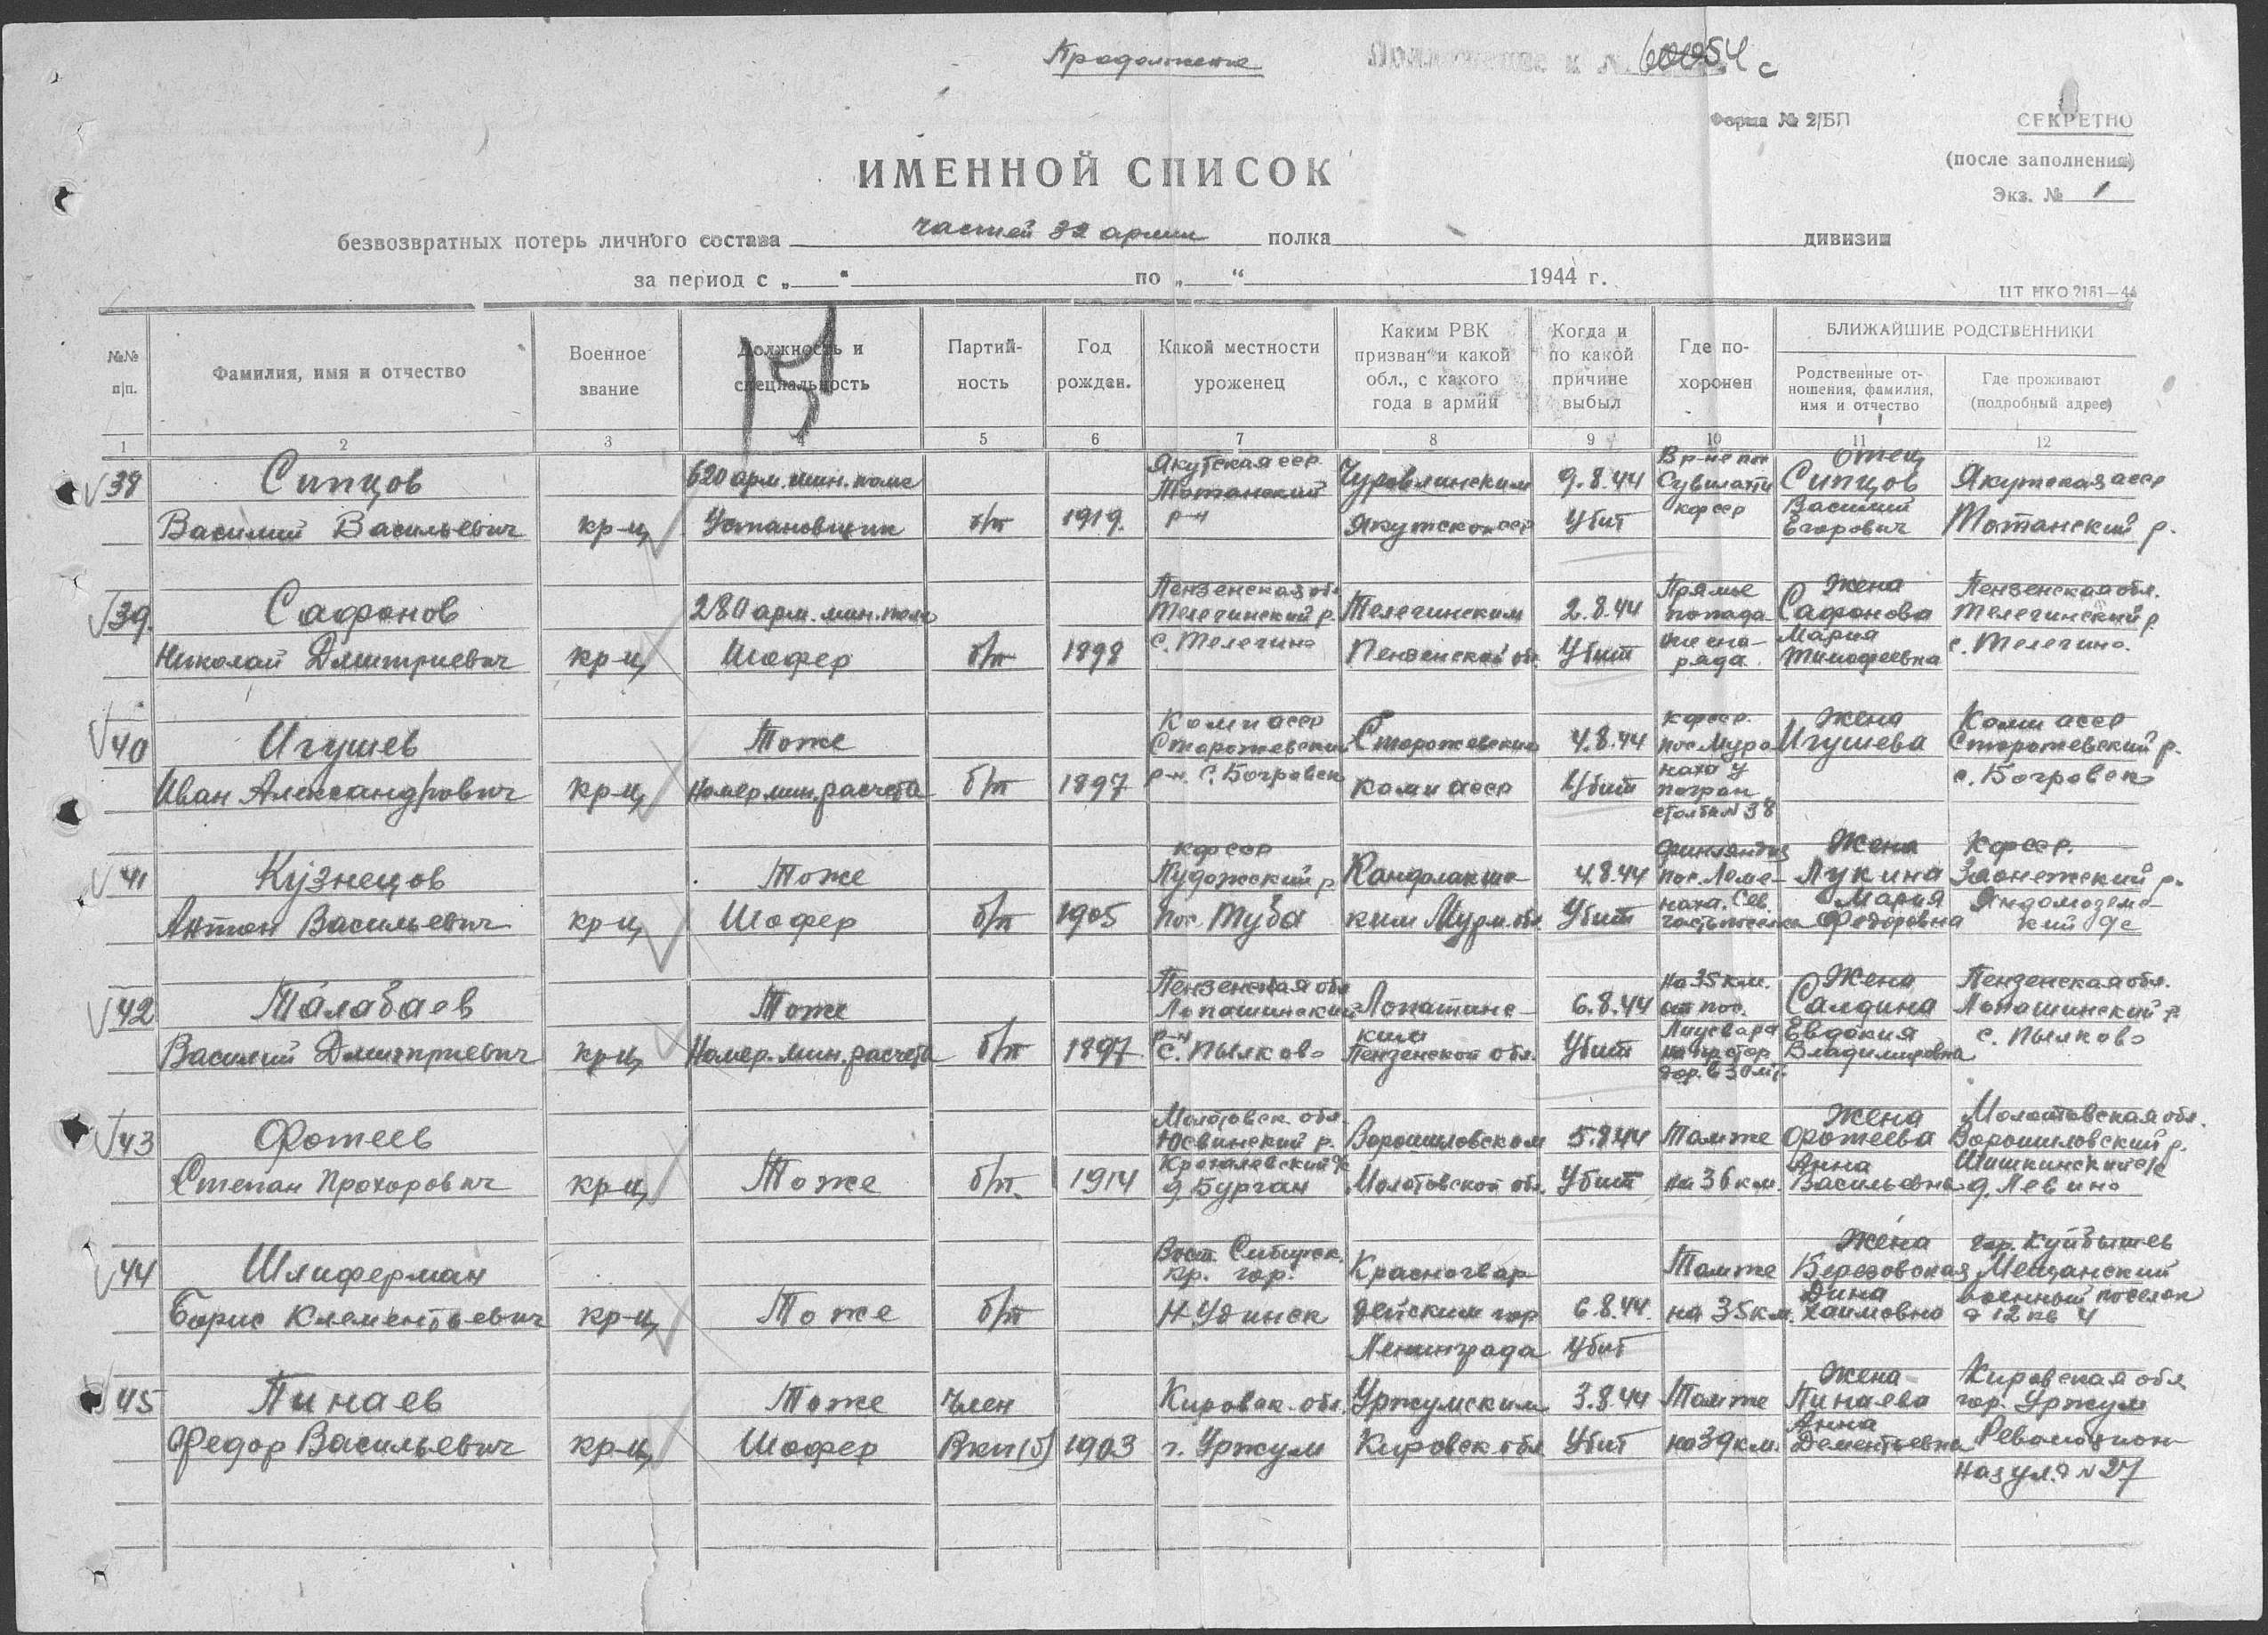 Продолжение
60054 с
Форма № 2/БП
СЕКРЕТНО
(после заполнения)
Экз. № 1
ИМЕННОЙ СПИСОК
безвозвратных потерь личного состава частей 32 армии полка дивизии
за период с „ “ по „ “ 1944 г.
ЦТ НКО 2151—44
151
№№ п/п.
Фамилия, имя и отчество
Военное звание
Должность и специальность
Партийность
Год рожден.
Какой местности уроженец
Каким РВК призван и какой обл., с какого года в армии
Когда и по какой причине выбыл
Где похоронен
БЛИЖАЙШИЕ РОДСТВЕННИКИ
Родственные отношения, фамилия, имя и отчество
Где проживают (подробный адрес)
1 2 3 4 5 6 7 8 9 10 11 12
38 Сипцов 620 арм. мин. полк Якутская сср Чуровлинским 9.8.44 В р-не пос Отец Сипцов Якутская асср
Василий Васильевич кр-ц Установщик б/п 1919. р-н Якутской сср Убит кфсср Василий Егорович Татанский р.
39. Сафонов 280 арм. мин. полк Пензенская обл Телегинский р. Телегинским 2.8.44 Прямое попада Жена Сафонова Пензенская обл. Телегинский р
Николай Дмитриевич кр-ц Шофер б/п 1898 с. Телегино Пензенской обл Убит ние сна- ряда Мария Тимофеевна с. Телегино.
40 Игушев Тоже Коми асср Сторожевский Сторожевским 4.8.44 кфсср. пос. Муро Жена Игушева Коми асср Сторожевский р.
Иван Александрович кр-ц Номер мин. расчета б/п 1897 р-н. с. Богровск Коми асср Убит наха у погран столба № 38 с. Богровск
41 Кузнецов Тоже кфсср Пудожский р Кандалакш- 4.8.44 Финляндия пос. Леме- Жена Лукина Кфсср. Заонежский р.
Антон Васильевич кр-ц Шофер б/п 1905 пос. Туба ким Мурм. обл. Убит наха. Сев. часть поселка Мария Федоровна Яндомозерс- кий с/с
42 Талабаев Тоже Пензенская обл Лопатинский Лопатинс- 6.8.44 на 35 км. от пос. Жена Салдина Пензенская обл. Лопатинский р.
Василий Дмитриевич кр-ц Номер. мин. расчета б/п 1897 р-н с. Пылково ким Пензенской обл. Убит Лиусвара Евдокия Владимировна с. Пылково
43 Фотеев Молотовск. обл. Юсвинский р. Ворошиловском 5.8.44 Тамже Жена Фотеева Молотовская обл. Ворошиловский р.
Степан Прохорович кр-ц Тоже б/п. 1914 д. Бурган Молотовской обл. Убит на 36 км. Анна Васильевна Шишкинский с/с д. Левино
44 Шлиферман Вост. Сибирск. кр. гор. Красногвар- Тамже Жена Березовская гор. Куйбышев Мещанский
Борис Клементьевич кр-ц Тоже б/п Н.Удинск дейским гор 6.8.44. на 35 км. Дина Хаимовна военный поселок д 12 кв 4
Ленинграда Убит
45 Пинаев Тоже Член Кировск. обл. Уржумским 3.8.44 Тамже Жена Пинаева Кировская обл гор. Уржум
Федор Васильевич кр-ц Шофер Вкп(б) 1903 г. Уржум Кировск. обл Убит на 39 км. Анна Дементьевна Революцион-
ная ул. д № 27